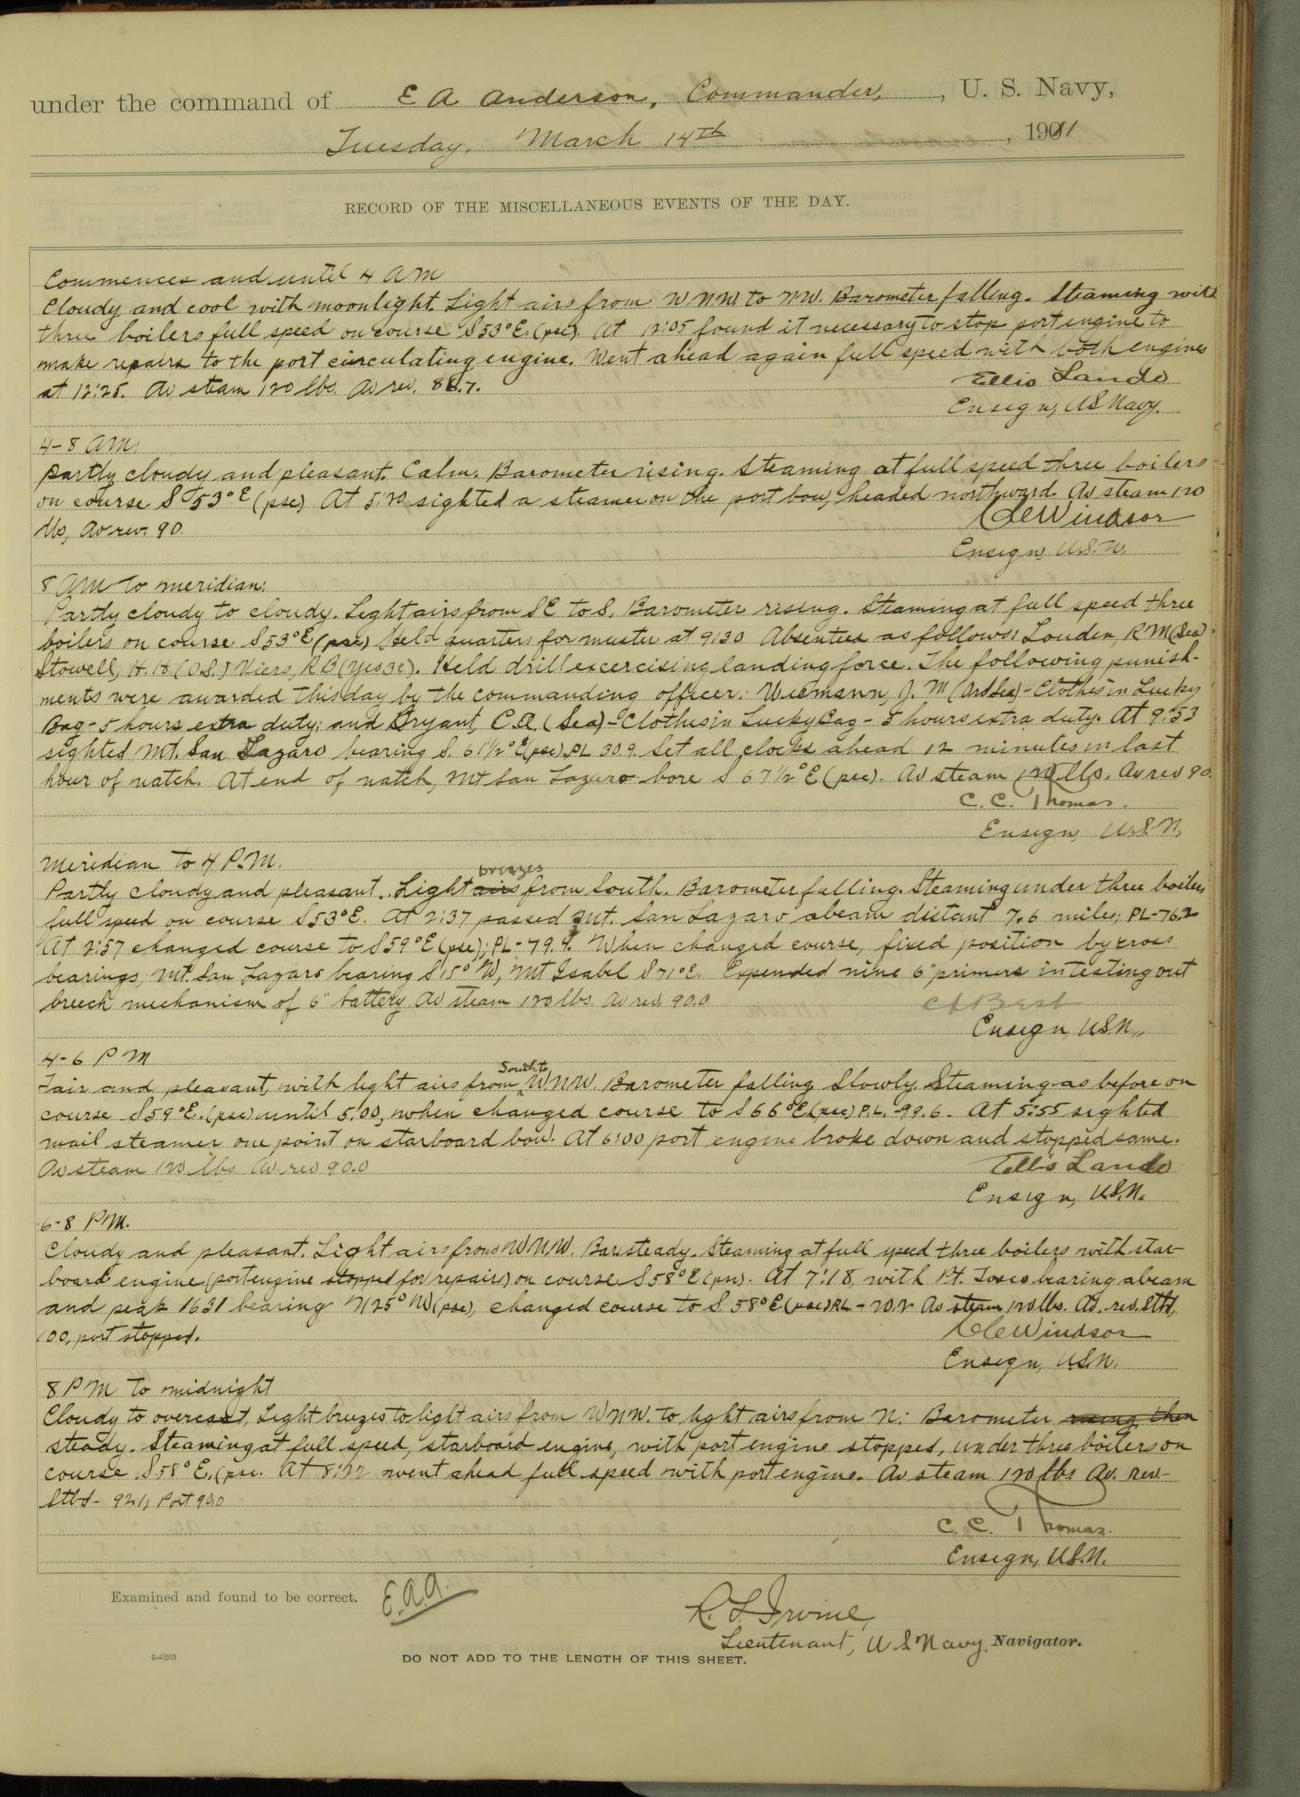 under the command of E A Anderson, Commander, , U. S. Navy,
Tuesday, March 14th , 1911
RECORD OF THE MISCELLANEOUS EVENTS OF THE DAY.
Commences and until 4 AM
Cloudy and cool with moonlight. Light airs from WNW. to NW. Barometer falling. Steaming with
three boilers full speed on course S53°E. (psc). At 12:05 found it necessary to stop port engine to
make repairs to the port circulating engine. Went ahead again full speed with both engines
at 12:25. Av steam 120 lbs. Av rev. 88.7.
Ellis Lando
Ensign, US Navy.
4-8 AM.
Partly cloudy and pleasant. Calm. Barometer rising. Steaming at full speed three boilers
on course S 53°E (psc) At 5:20 sighted a steamer on the port bow, headed northward. Av steam 120
lbs, Av rev. 90.
Windsor
Ensign, U.S.N.
8 AM to meridian:
Partly cloudy to cloudy. Light airs from SE to S. Barometer rising. Steaming at full speed three
boilers on course S53°E (psc) Held quarters for muster at 9:30 Absentees as follows: Louden, R M (Sea)
Stowell, H. H (O.S.) Viers, R B (Yeo 3c). Held drill excercising landing force. The following punish-
ments were awarded this day by the commanding officer: J. M - Clothes in Lucky
Bag - 5 hours extra duty; and Bryant, C.A. (Sea) - Clothes in Lucky Bag - 5 hours extra duty. At 9:53
sighted Mt. San Lazaro bearing S. 61½°E (psc). PL 30.9. Set all clocks ahead 12 minutes in last
hour of watch. At end of watch, Mt San Lazaro bore S 67½°E (psc). Av steam 120 lbs. Av rev 90.
C. C. Thomas.
Ensign, U.S.N.
Meridian to 4 P.M.
breezes
Partly cloudy and pleasant. Light airs from South. Barometer falling. Steaming under three boilers
full speed on course S53°E. At 2:37 passed Mt. San Lazaro abeam distant 7.6 miles; PL-76.2
At 2:57 changed course to S59°E (psc); PL-79.9. When changed course, fixed position by cross
bearings, Mt. San Lazaro bearing S15°W, Mt Isabel S71°E. Expended nine 6" primers in testing out
breech mechanism of 6" battery. Av steam 120 lbs. Av rev. 90.0
Ensign, U.S.N.,
4-6 PM
South to
Fair and pleasant, with light airs from WNW. Barometer falling slowly. Steaming as before on
course S59°E. (psc) until 5:00, when changed course to S66°E (psc) P.L.-99.6. At 5:55 sighted
mail steamer one point on starboard bow. At 6:00 port engine broke down and stopped same.
Av steam 120 lbs Av rev 90.0
Ellis Lando
Ensign, U.S.N.
6-8 PM.
Cloudy and pleasant. Light airs from WNW. Bar. steady. Steaming at full speed three boilers with star-
board engine (port engine stopped for repairs) on course S58°E (psc). At 7:18 with Pt. Tosco bearing abeam
and peak 1631 bearing N25°W (psc), changed course to S 58°E (psc) P.L. - 20.2 Av steam 120 lbs. Av. rev. Stbd,
100, port stopped.
Windsor
Ensign, U.S.N.
8 PM to midnight
Cloudy to overcast, Light breezes to light airs from WNW. to light airs from N: Barometer rising then
steady. Steaming at full speed, starboard engine, with port engine stopped, under three boilers on
course S58°E, (psc. At 8:22 went ahead full speed with port engine. Av steam 120 lbs Av. rev-
Stbd- 92.1, Port 90.0
C. C. Thomas.
Ensign, U.S.N.
Examined and found to be correct. E.A.A.
R. L. Irvine,
Lieutenant, U S Navy, Navigator.
DO NOT ADD TO THE LENGTH OF THIS SHEET.